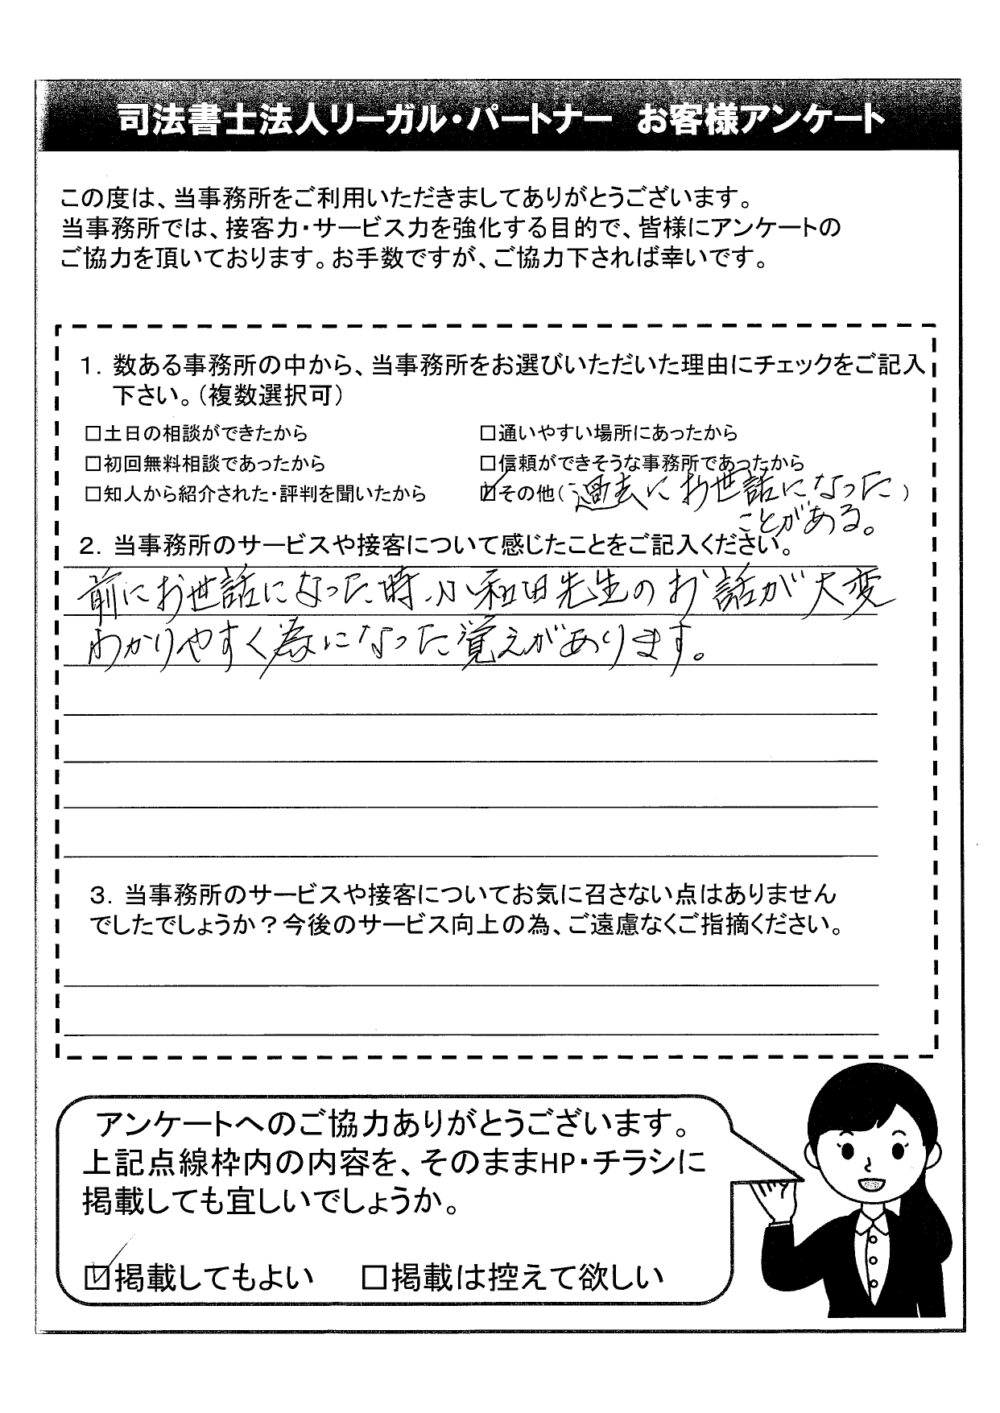 司法書士法人リーガル・パートナー　お客様アンケート
この度は、当事務所をご利用いただきましてありがとうございます。
当事務所では、接客力・サービス力を強化する目的で、皆様にアンケートの
ご協力を頂いております。お手数ですが、ご協力下されば幸いです。
1. 数ある事務所の中から、当事務所をお選びいただいた理由にチェックをご記入
下さい。(複数選択可)
□土日の相談ができたから　□通いやすい場所にあったから
□初回無料相談であったから　□信頼ができそうな事務所であったから
□知人から紹介された・評判を聞いたから　☑その他(過去にお世話になった)
ことがある。
2. 当事務所のサービスや接客について感じたことをご記入ください。
前にお世話になった時、小和田先生のお話が大変
わかりやすく為になった覚えがあります。
3. 当事務所のサービスや接客についてお気に召さない点はありません
でしたでしょうか？今後のサービス向上の為、ご遠慮なくご指摘ください。
アンケートへのご協力ありがとうございます。
上記点線枠内の内容を、そのままHP・チラシに
掲載しても宜しいでしょうか。
☑掲載してもよい　□掲載は控えて欲しい